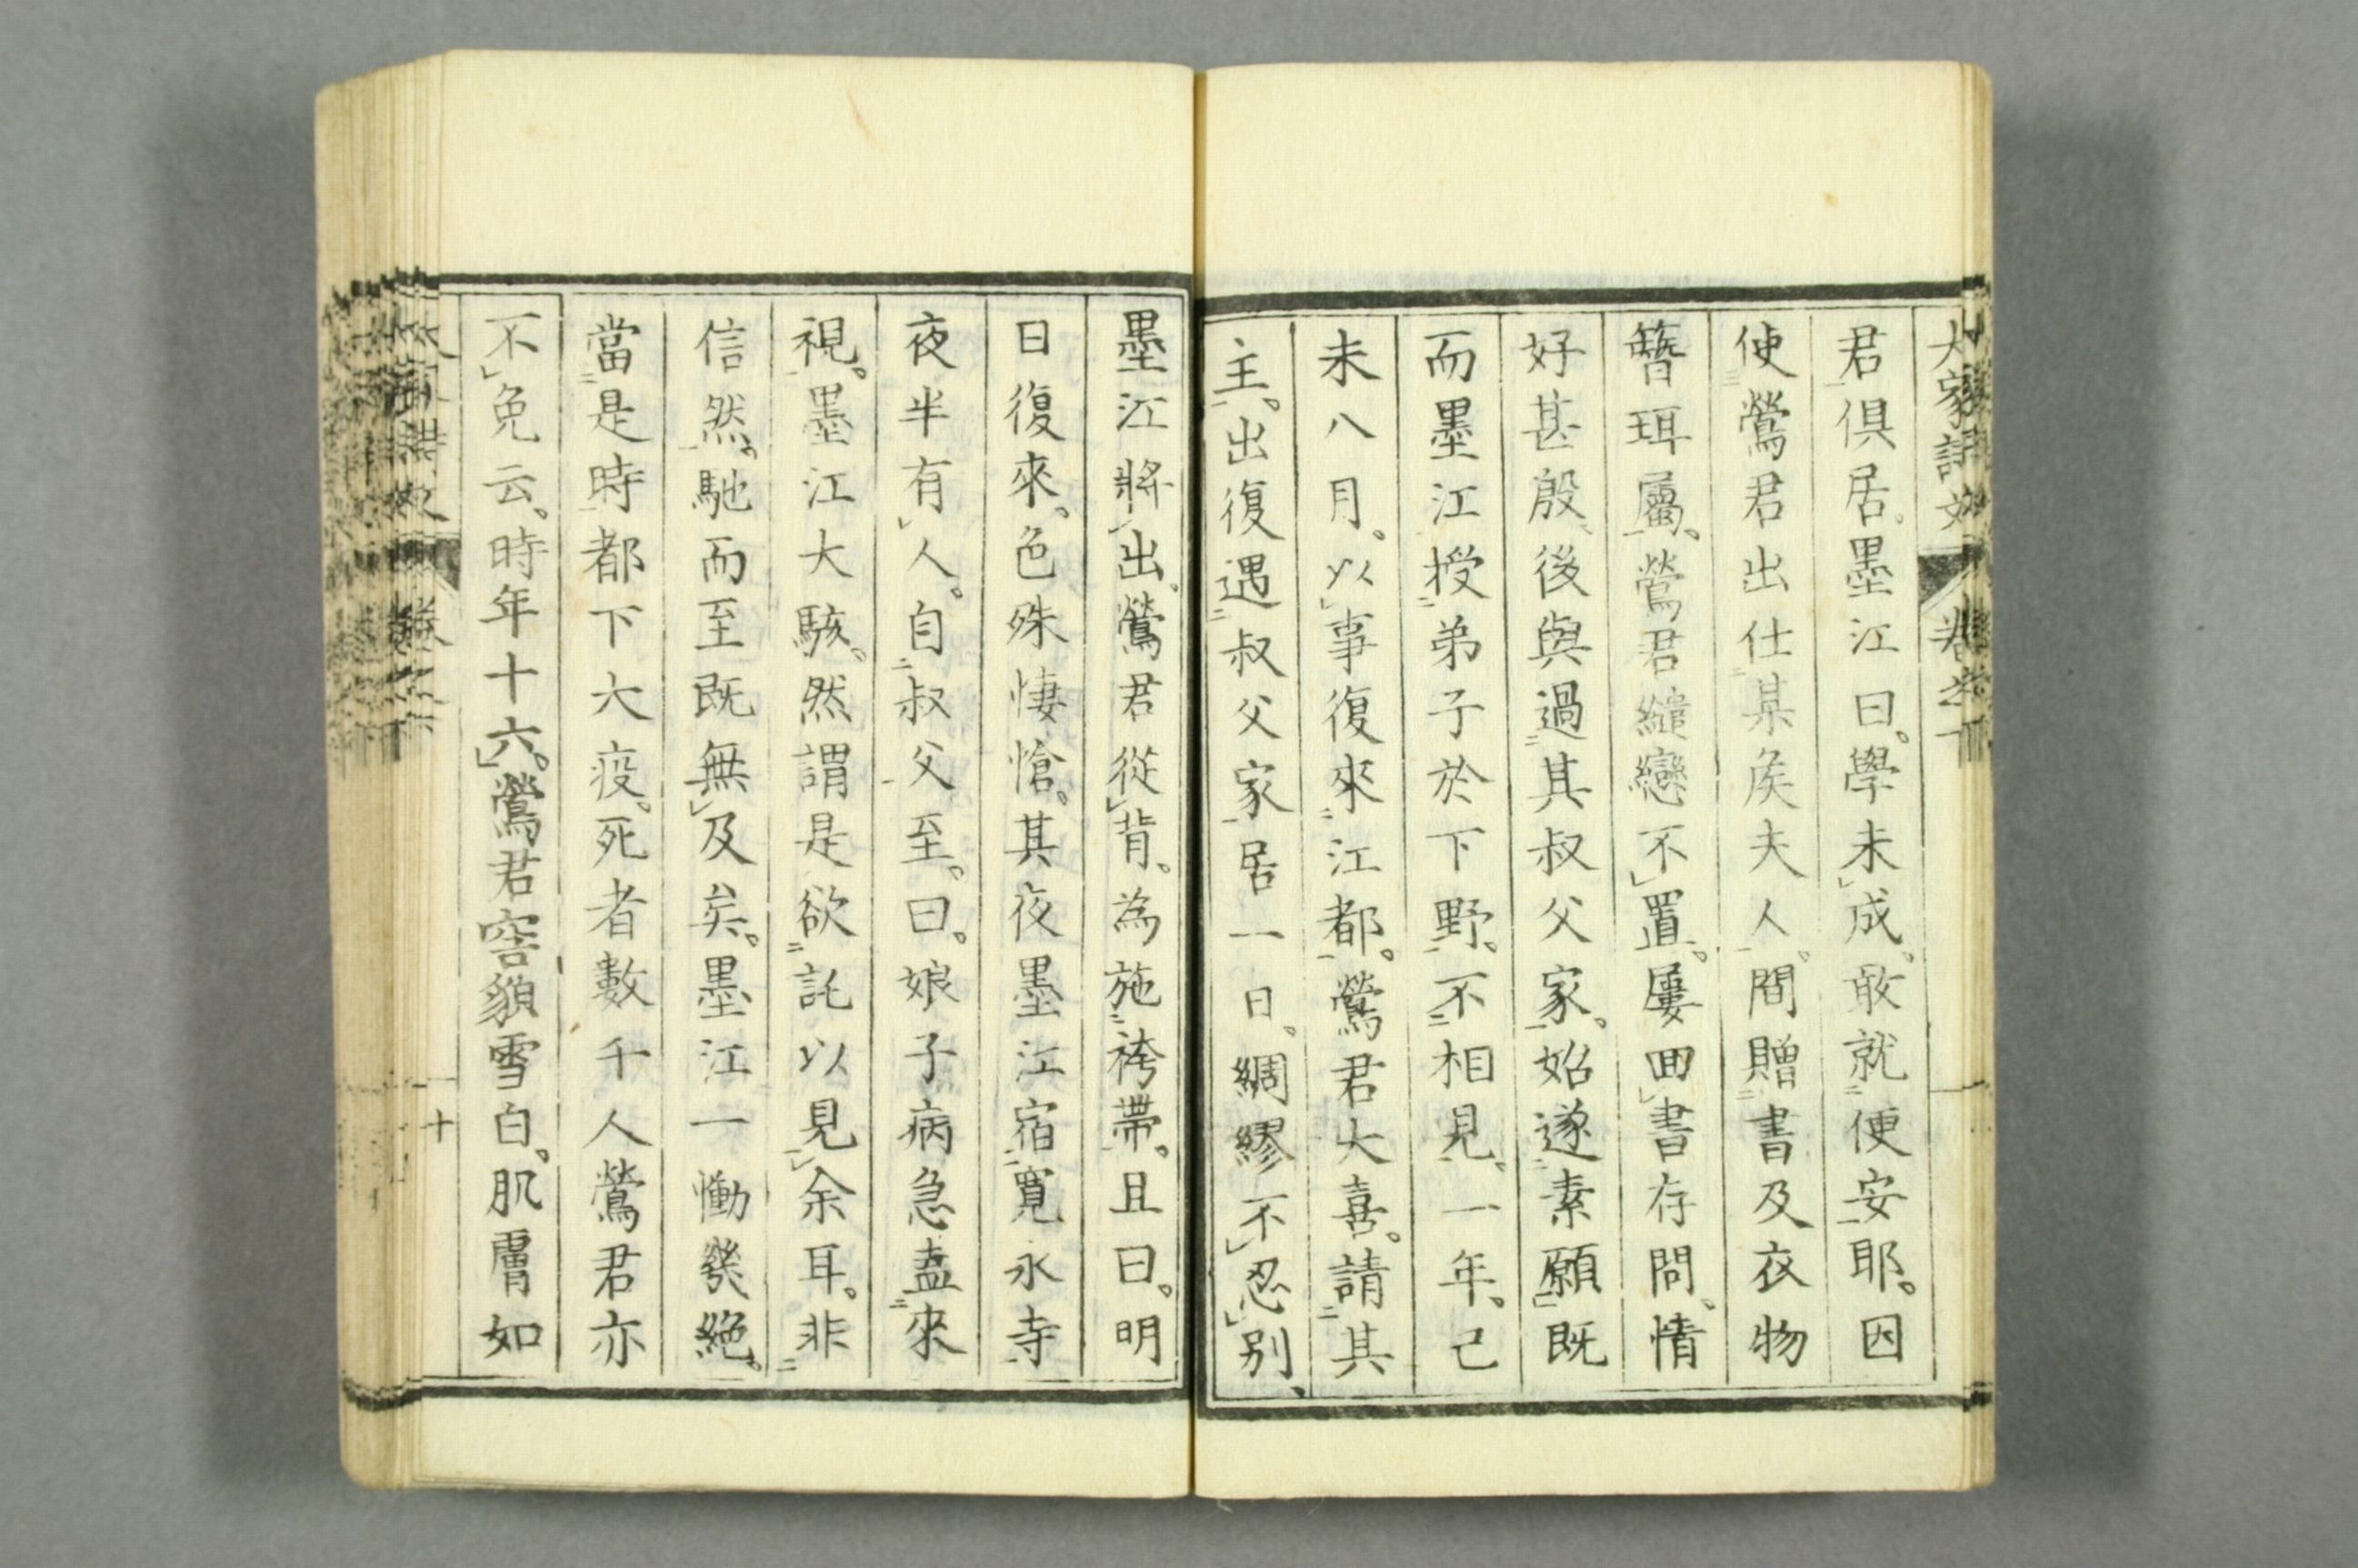 君俱居。墨江曰。學未成。敢就便安耶。因
使鶯君出仕某矦夫人。間贈書及衣物
簪珥屬。鶯君繾戀不置。屢回書存問。情
好甚殷。後與過其叔父家。始遂素願既
而墨江授弟子於下野。不相見。一年。己
未八月。以事復來江都。鶯君大喜。請其
主。出復遇叔父家。居一日。綢繆不忍別、
墨江將出。鶯君從背。為施袴帶。且曰。明
日復來。色殊悽愴。其夜墨江宿寛永寺
夜半有人。自叔父至。曰。娘子病急盍來
視。墨江大駭。然謂是欲託以見余耳。非
信然。馳而至既無及矣。墨江一慟幾絶。
當是時都下大疫。死者數千人鶯君亦
不免云。時年十六。鶯君容貌雪白。肌膚如
十